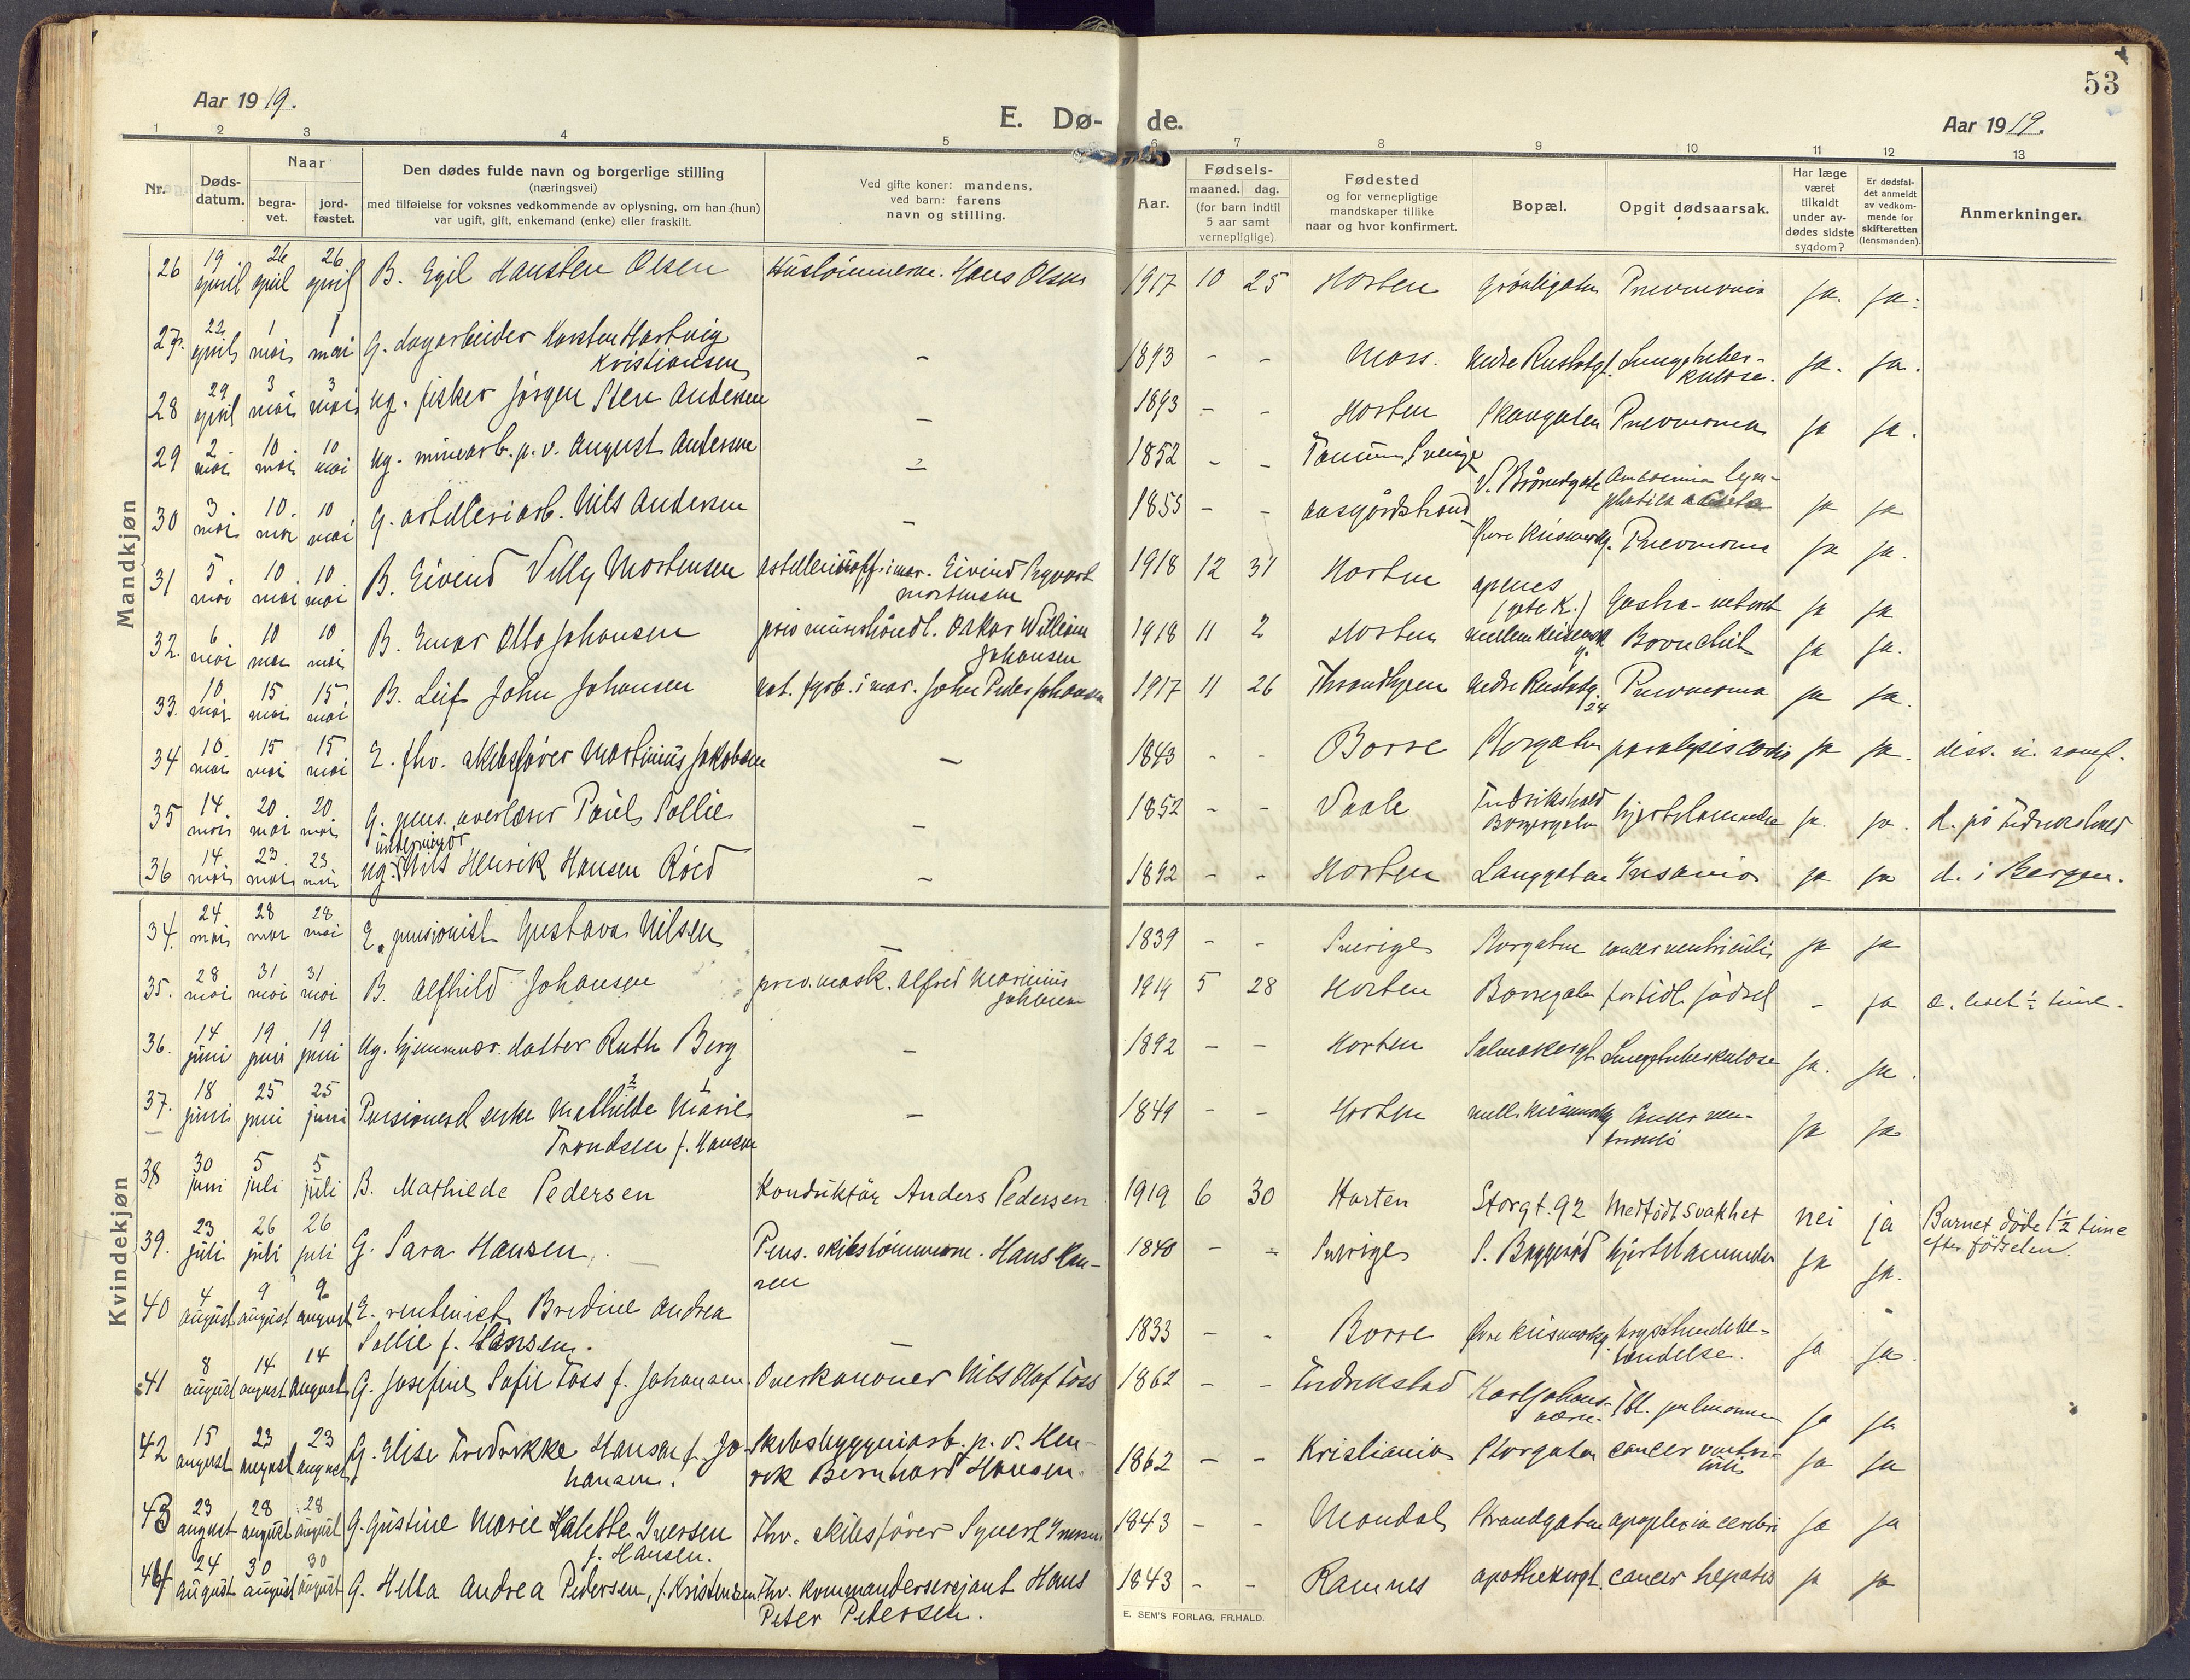 53
Aar 1919.
E. Dø- de.
Aar 1919.
1 2 3 4 5 6 7 8 9 10 11 12 13
Nr.
Døds-
datum.
Naar
begra-
vet.
jord-
fæstet.
Den dødes fulde navn og borgerlige stilling
(næringsvei)
med tilføielse for voksnes vedkommende av oplysning, om han (hun)
var ugift, gift, enkemand (enke) eller fraskilt.
Ved gifte koner: mandens,
ved barn: farens
navn og stilling.
Aar.
Fødsels-
maaned. dag.
(for barn indtil
5 aar samt
vernepligtige)
Fødested
og for vernepligtige
mandskaper tillike
naar og hvor konfirmert.
Bopæl.
Opgit dødsaarsak.
Har læge
været
tilkaldt
under av-
dødes sidste
sygdom?
Er dødsfal-
det anmeldt
av vedkom-
mende for
skifteretten
(lensmanden).
Anmerkninger.
Mandkjøn
26 19 april 26 april 26 april B. Egil Hansten Olsen Hustømmerm. Hans Olsen 1917 10 25 Horten Grønligaten Pneumonia ja. ja.
27. 22 april 1 mai 1 mai G. dagarbeider Karsten Hartvig
Kristiansen - 1893 - - Moss. Nedre Rustadgt. Lungetuber-
kulose. ja. ja.
28 29 april 3 mai 3 mai ug. fisker Jørgen Sten Andersen - 1893 - - Horten Skovgaten Pneumonia ja ja.
29 2 mai 10 mai 10 mai ug. minearb. p. v. August Andersen - 1852 - - Tanum, Sverige
ja ja
30 3 mai 10. mai 10 mai G. artilleriarb. Nils Andersen - 1853 - - Aasgårdstrand Pneumonia ja ja.
31 5 mai 10 mai 10 mai B. Eivind Villy Mortensen
Mortensen 1918 12 31 Horten Apenes Gastro- ja ja
32. 6 mai 10 mai 10 mai B. Einar Otto Johansen Oskar William
Johansen 1918 11 2 Horten Bronchit ja ja.
33. 10 mai 15 mai 15 mai B. Leif John Johansen John Peder Johansen 1917 11 26 Throndhjem Nedre Rustadg.
24 Pneumonia ja ja.
34 10 mai 15 mai 15 mai E. fhv. skibsfører Martinius Jakobsen - 1843 - - Borre Storgaten paralysis cordis ja ja.
35 14 mai 20 mai 20 mai G. pens. Paul Sollie - 1852 - - Fredrikshald
Borregaten hjertelammelse ja. ja. d. på Fredrikshald
36 14 mai 23 mai 23 mai ug. Nils Henrik Hansen Röed - 1892 - - Horten Langgaten Insania ja ja d. i Bergen.
Kvindekjøn
34. 24 mai 28 mai 28 mai E. pensionist Gustava Nilsen - 1839 - - Sverige Storgaten cancer ventriculi ja ja
35. 28 mai 31 mai 31 mai B. Alfhild Johansen Alfred Marinius
Johansen 1919 5 28 Horten Borregaten for tidl. födsel - ja
36. 14 juni 19 juni 19 juni Ug. hjemmev. datter Ruth Berg - 1892 - - Horten Lungetuberkulose ja. ja.
37. 18 juni 25 juni 25 juni Pensionert enke Mathilde 2 Marie 1
Trondsen f. Hansen - 1849 - - Horten ja ja
38 30 juni 5 juli 5 juli B. Mathilde Pedersen Konduktör Anders Pedersen 1919 6 30 Horten Storgt. 92 Medfödt svakhet nei ja Barnet döde 1½ time
efter födselen.
39. 23 juli 26 juli 26 juli G. Sara Hansen Pens. skibstömmerm. Hans Han-
sen 1840 - - Sverige hjertelammelse ja ja.
40 4 august 9 august 9 august E. rentenist Bredine Andrea
Sollie f. Hansen. - 1833 - - Borre brysthindebe-
tændelse. ja ja.
41 8 august 14 august 14 august G. Josefine Sofie Foss f. Johansen. Overkanoner Nils Olaf Foss 1862 - - Fredrikstad Karljohans-
værn. Tbl. pulmonum ja ja
42 15 august 23 august 23 august G. Elise Fredrikke Hansen f. Jo-
hansen. Skibsbyggeriarb. p. v. Hen-
rik Bernhard Hansen. 1862 - - Kristiania Storgaten cancer ventri-
culi ja ja
43 23 august 28 august 28 august G. Gustine Marie Halette Iversen
f. Hansen. Fhv. skibsfører Syvert Iversen 1843 - - Mandal Strandgaten apoplexia cerebri ja ja
44 24 august 30 august 30 august G. Hella Andrea Pedersen, f. Kristensen Fhv. kommandersersjant Hans
Peter Petersen. 1843 - - Ramnes apothekergt. cancer hepatis ja ja
E. SEM'S FORLAG, FR.HALD.